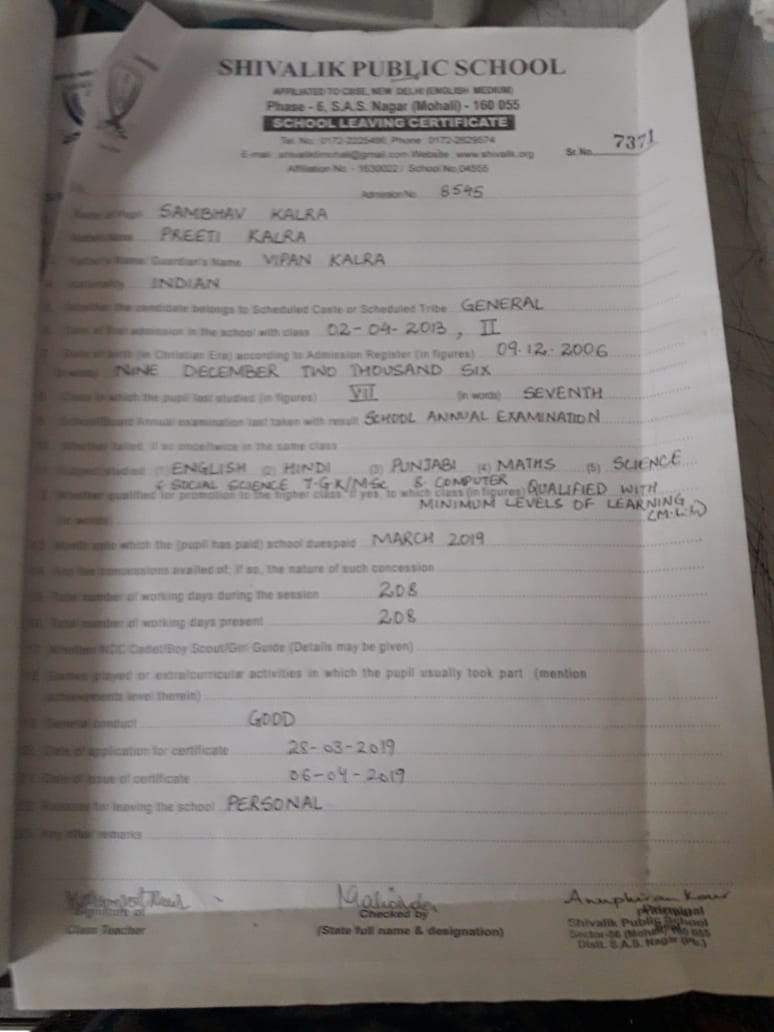 SHIVALIK PUBLIC SCHOOL
AFFILIATED TO CBSE, NEW DELHI (ENGLISH MEDIUM)
Phase - 6, S.A.S. Nagar (Mohali) - 160 055
SCHOOL LEAVING CERTIFICATE
Tel. No. 0172-2225486, Phone : 0172-2629574
E-mail : shivalikmohali@gmail.com Website www.shivalik.org Sr. No. 7371
Affiliation No. - 1630022 / School No. 04555
Admission No. 8545
Name of Pupil SAMBHAV KALRA
Mother's Name PREETI KALRA
Father's Name/ Guardian's Name VIPAN KALRA
4. Nationality INDIAN
5. Whether the candidate belongs to Scheduled Caste or Scheduled Tribe GENERAL
6. Date of first admission in the school with class 02-04-2013, II
7. Date of birth (in Christian Era) according to Admission Register (in figures) 09.12.2006
(in words) NINE DECEMBER TWO THOUSAND SIX
8. Class in which the pupil last studied (in figures) VII (in words) SEVENTH
9. School/Board Annual examination last taken with result SCHOOL ANNUAL EXAMINATION
10. Whether failed, if so once/twice in the same class
11. Subject studied (1) ENGLISH (2) HINDI (3) PUNJABI (4) MATHS (5) SCIENCE
6 SOCIAL SCIENCE 7. G.K/M.Sc 8. COMPUTER
12. Whether qualified for promotion to the higher class. If yes, to which class (in figures) QUALIFIED WITH
MINIMUM LEVELS OF LEARNING
(in words) (M.L.L)
13. Month upto which the (pupil has paid) school dues paid MARCH 2019
14. Any fee concessions availed of, if so, the nature of such concession
15. Total number of working days during the session 208
16. Total number of working days present 208
17. Whether NCC Cadet/Boy Scout/Girl Guide (Details may be given)
18. Games played or extralcurricular activities in which the pupil usually took part (mention
achievements level therein)
19. General conduct GOOD
20. Date of application for certificate 28-03-2019
21. Date of issue of certificate 06-04-2019
22. Reasons for leaving the school PERSONAL
23. Any other remarks
Signature of Checked by Principal
Class Teacher (State full name & designation) Shivalik Public School
Sector-56 (Mohali) 160 055
Distt. S.A.S. Nagar (Pb.)